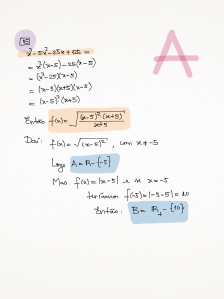 x³-5x²-25x+125 =
= x²(x-5)-25(x-5)
= (x²-25)(x-5)
= (x-5)(x+5)(x-5)
= (x-5)²(x+5)
A
Então f(x)= √((x-5)²(x+5)/x+5)
Daí: f(x)=√(x-5)² , com x≠-5
Logo A=R-{-5}
Mas f(x)=|x-5| e se x=-5
teríamos f(-5)=|-5-5|=10
Então: B= R₊-{10}